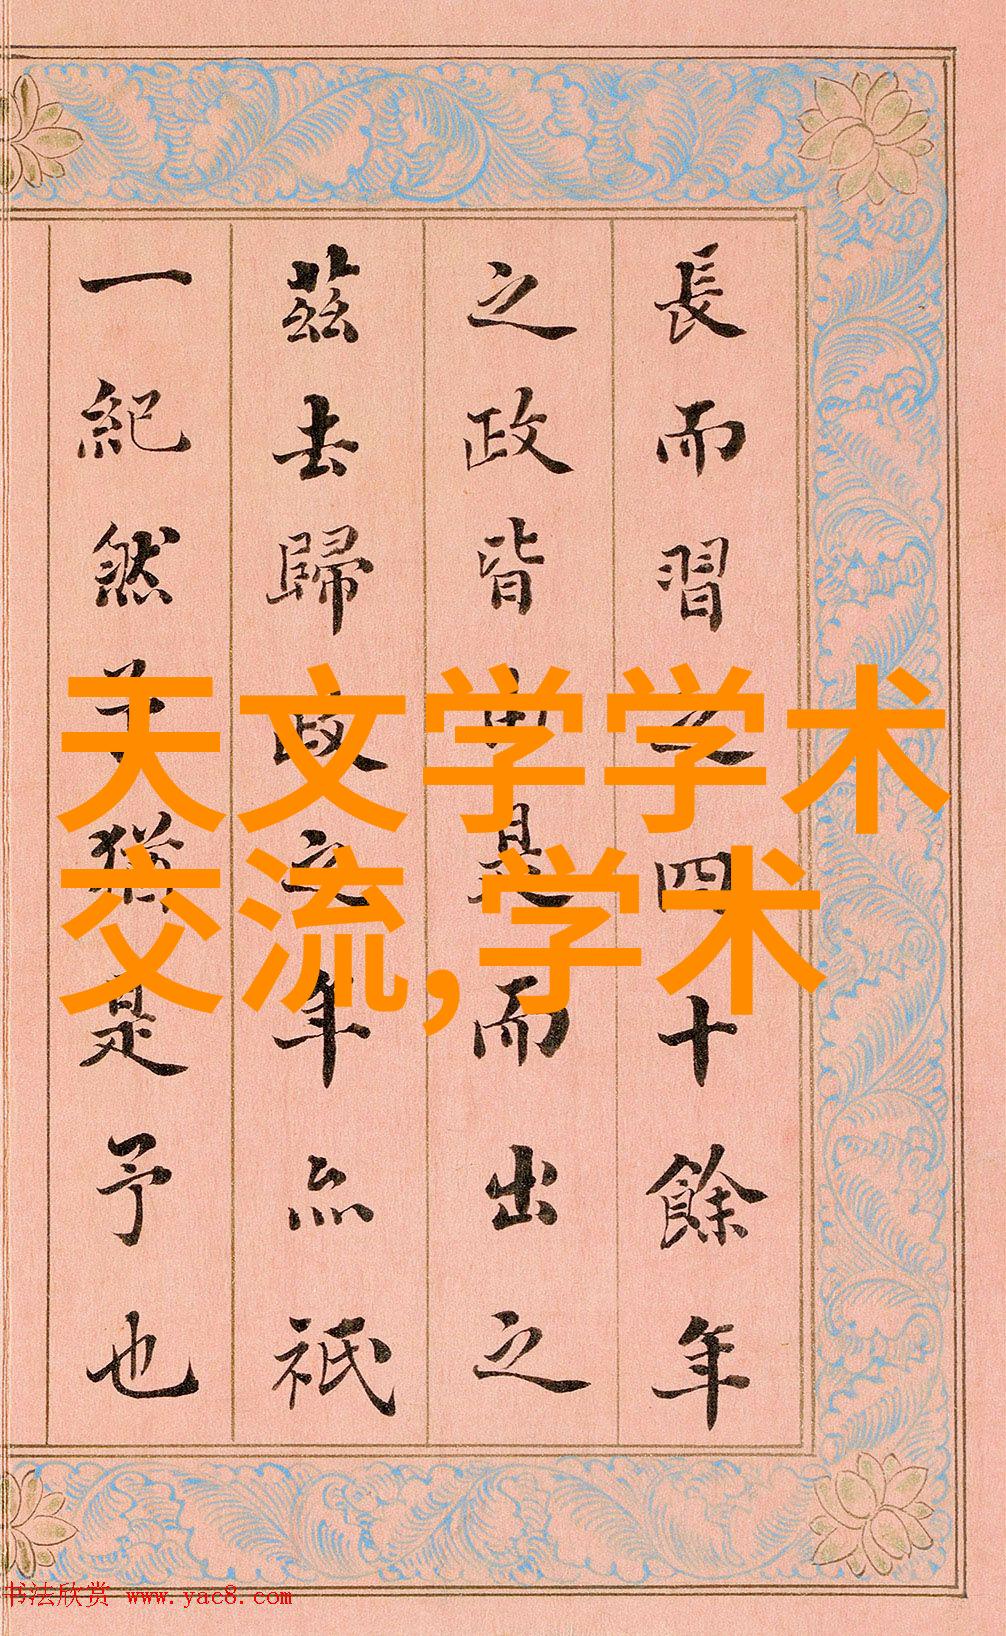 長而習之四十餘年
之政皆由是而出之
茲去歸政之年亦祇
一紀然予猶是予也
天文学学术
交流,学术
书法欣赏 www.yac8.com